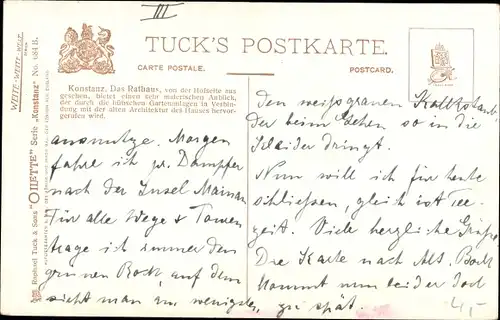 III
TUCK'S POSTKARTE.
CARTE POSTALE.
POSTCARD.
WEITE-WEITE-WELT
Konstanz. Das Rathaus, von der Hofseite aus
gesehen, bietet einen sehr malerischen Anblick,
der durch die hübschen Gartenanlagen in Verbin-
dung mit der alten Architektur des Hauses hervor-
gerufen wird.
Raphael Tuck & Sons "OILETTE" Serie „Konstanz" No. 684 B.
ausnutze. Morgen
fahre ich pr. Dampfer
nach der Insel Mainau
Für alle Wege & Touren
trage ich immer den
grünen Rock, auf dem
sieht man am wenigsten
den weissgrauen Kalkstaub
der beim Gehen so in die
Kleider dringt.
Nun will ich für heute
schließen, gleich ist Tee-
zeit. Viele herzliche Grüße
Die Karte nach
kommt nun leider
zu spät.
4,-